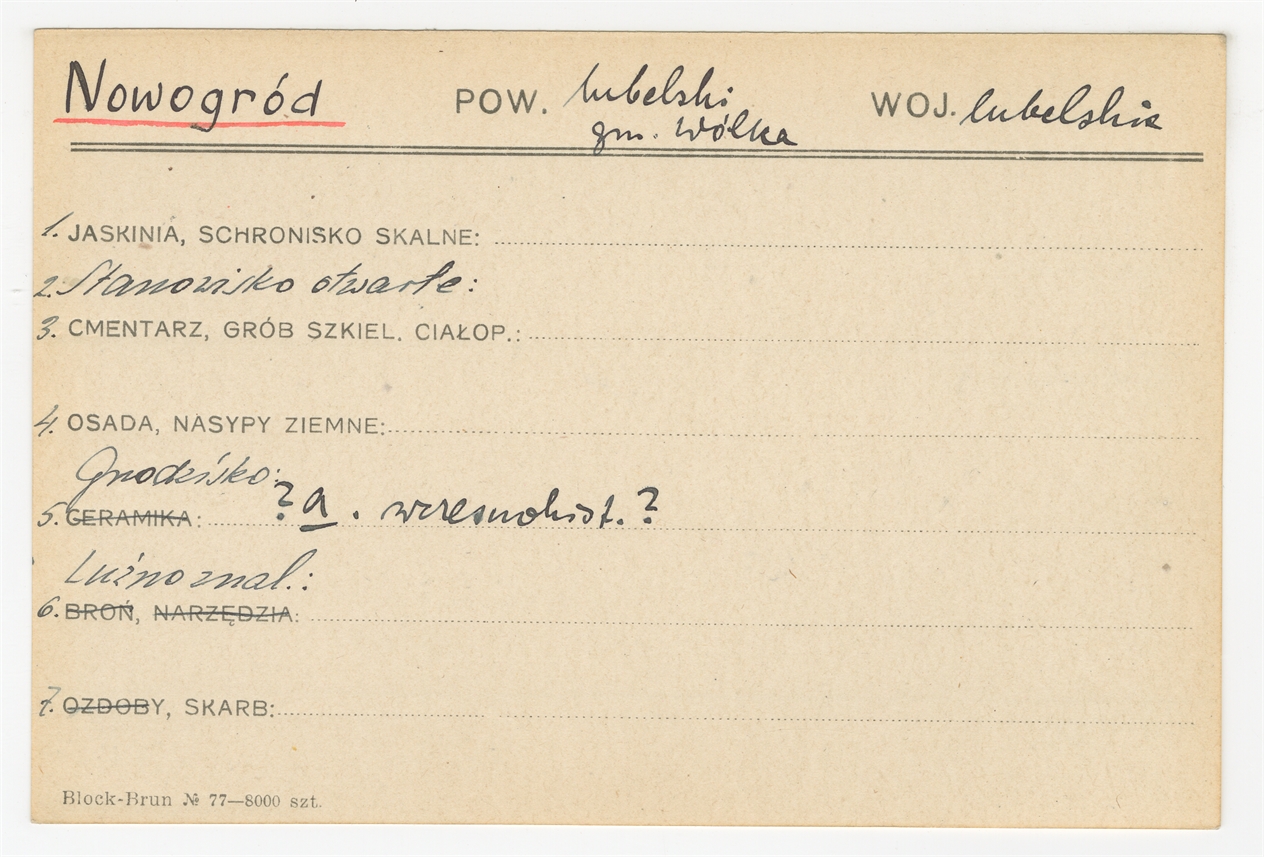 Nowogród POW. lubelski WOJ. lubelskie
gm. Wólka
1. JASKINIA, SCHRONISKO SKALNE:
2. Stanowisko otwarte:
3. CMENTARZ, GRÓB SZKIEL. CIAŁOP.:
4. OSADA, NASYPY ZIEMNE:
Grodzisko:
5. CERAMIKA: ? a. wczesnohist. ?
Luźno znal.:
6. BROŃ, NARZĘDZIA:
7. OZDOBY, SKARB:
Block-Brun № 77—8000 szt.